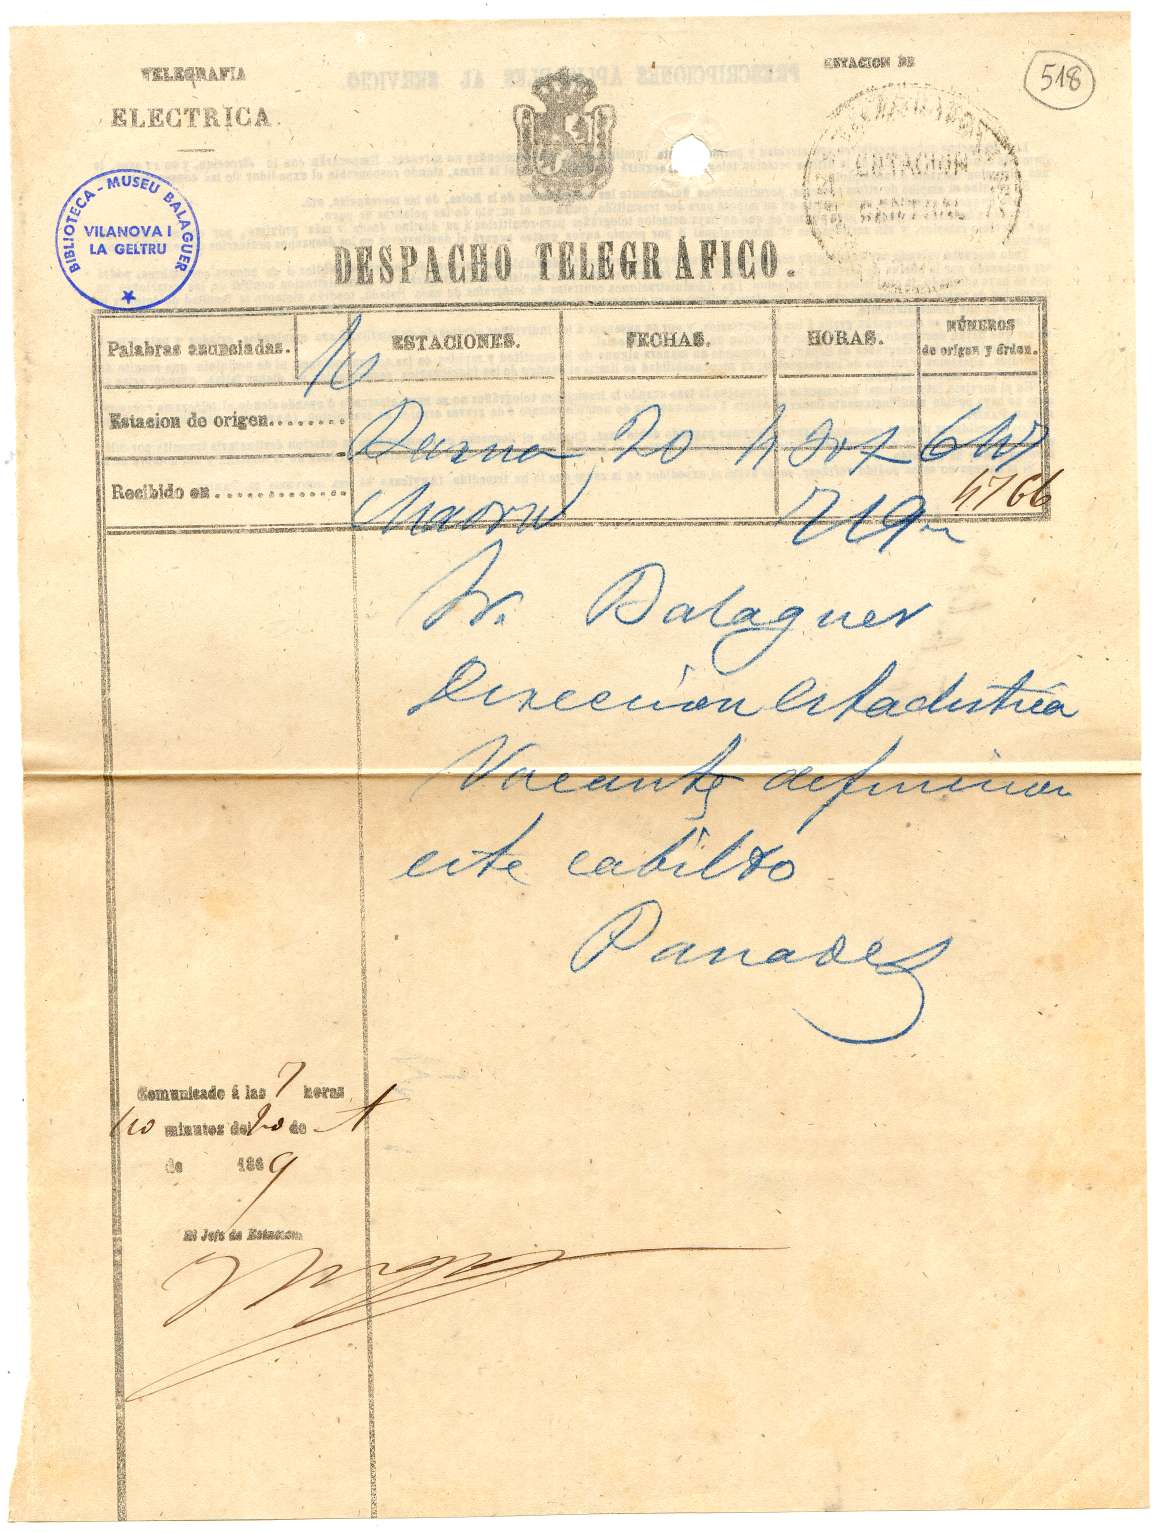 TELEGRAFIA
ELECTRICA
ESTACION DE
518
BIBLIOTECA - MUSEU BALAGUER
VILANOVA I
LA GELTRU
ESTACION
CENTRAL
DESPACHO TELEGRÁFICO.
Palabras anunciadas. 10 ESTACIONES. FECHAS. HORAS. NÚMEROS
de origen y órden.
Estacion de origen......... 20
Recibido en .............. Madrid 4766
Sr. Balaguer
Direccion Estadistica
Vacante
este cabildo
Panades
Comunicado á las 7 horas
minutos del 20 de A
de 1869
El Jefe de Estacion